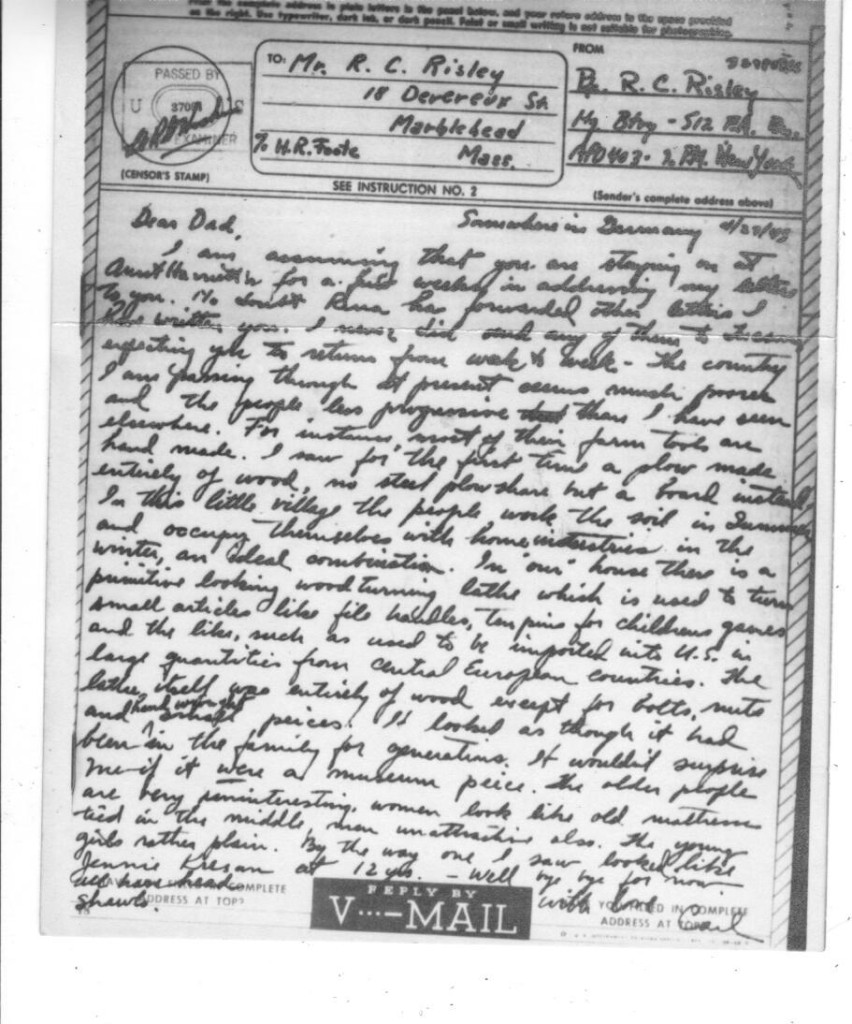 on the right. Use typewriter, dark ink, or dark pencil. Faint or small writing is not suitable for photographing.
PASSED BY
U
37081
EXAMINER
(CENSOR'S STAMP)
TO:
Mr. R. C. Risley
18 Devereux St.
Marblehead
% H.R. Foote Mass.
SEE INSTRUCTION NO. 2
FROM
R. C. Risley
Hq Btry - 512 F.A.
APO 403 - New York
(Sender's complete address above)
Somewhere in Germany
Dear Dad,
I am assuming that you are staying on at
Aunt Harriet's for a few weeks in addressing my letters
to you. No doubt Rena has forwarded other letters I
have written you. I never did send any of them to
expecting you to return from week to week - The country
I am passing through at present seems much poorer
and the people less progressive than I have seen
elsewhere. For instance, most of their farm tools are
hand made. I saw for the first time a plow made
entirely of wood, no steel plowshare but a board instead
In this little village the people work the soil in Summer
and occupy themselves with home industries in the
winter, an ideal combination. In "our" house there is a
primitive looking wood turning lathe which is used to turn
small articles like file handles, ten pins for childrens games
and the like, such as used to be imported into U.S. in
large quantities from central European countries. The
lathe itself was entirely of wood except for bolts, nuts
and small hand wrought peices. It looked as though it had
been in the family for generations. It wouldn't surprise
me if it were a museum peice. The older people
are very uninteresting, women look like old mattresses
tied in the middle, men unattractive also. The young
girls rather plain. By the way one I saw looked like
Jennie at 12 yrs. - Well bye bye for now
all have head
shawls.
with love
COMPLETE
ADDRESS AT TOP?
REPLY BY
V···—MAIL
IN COMPLETE
ADDRESS AT TOP?